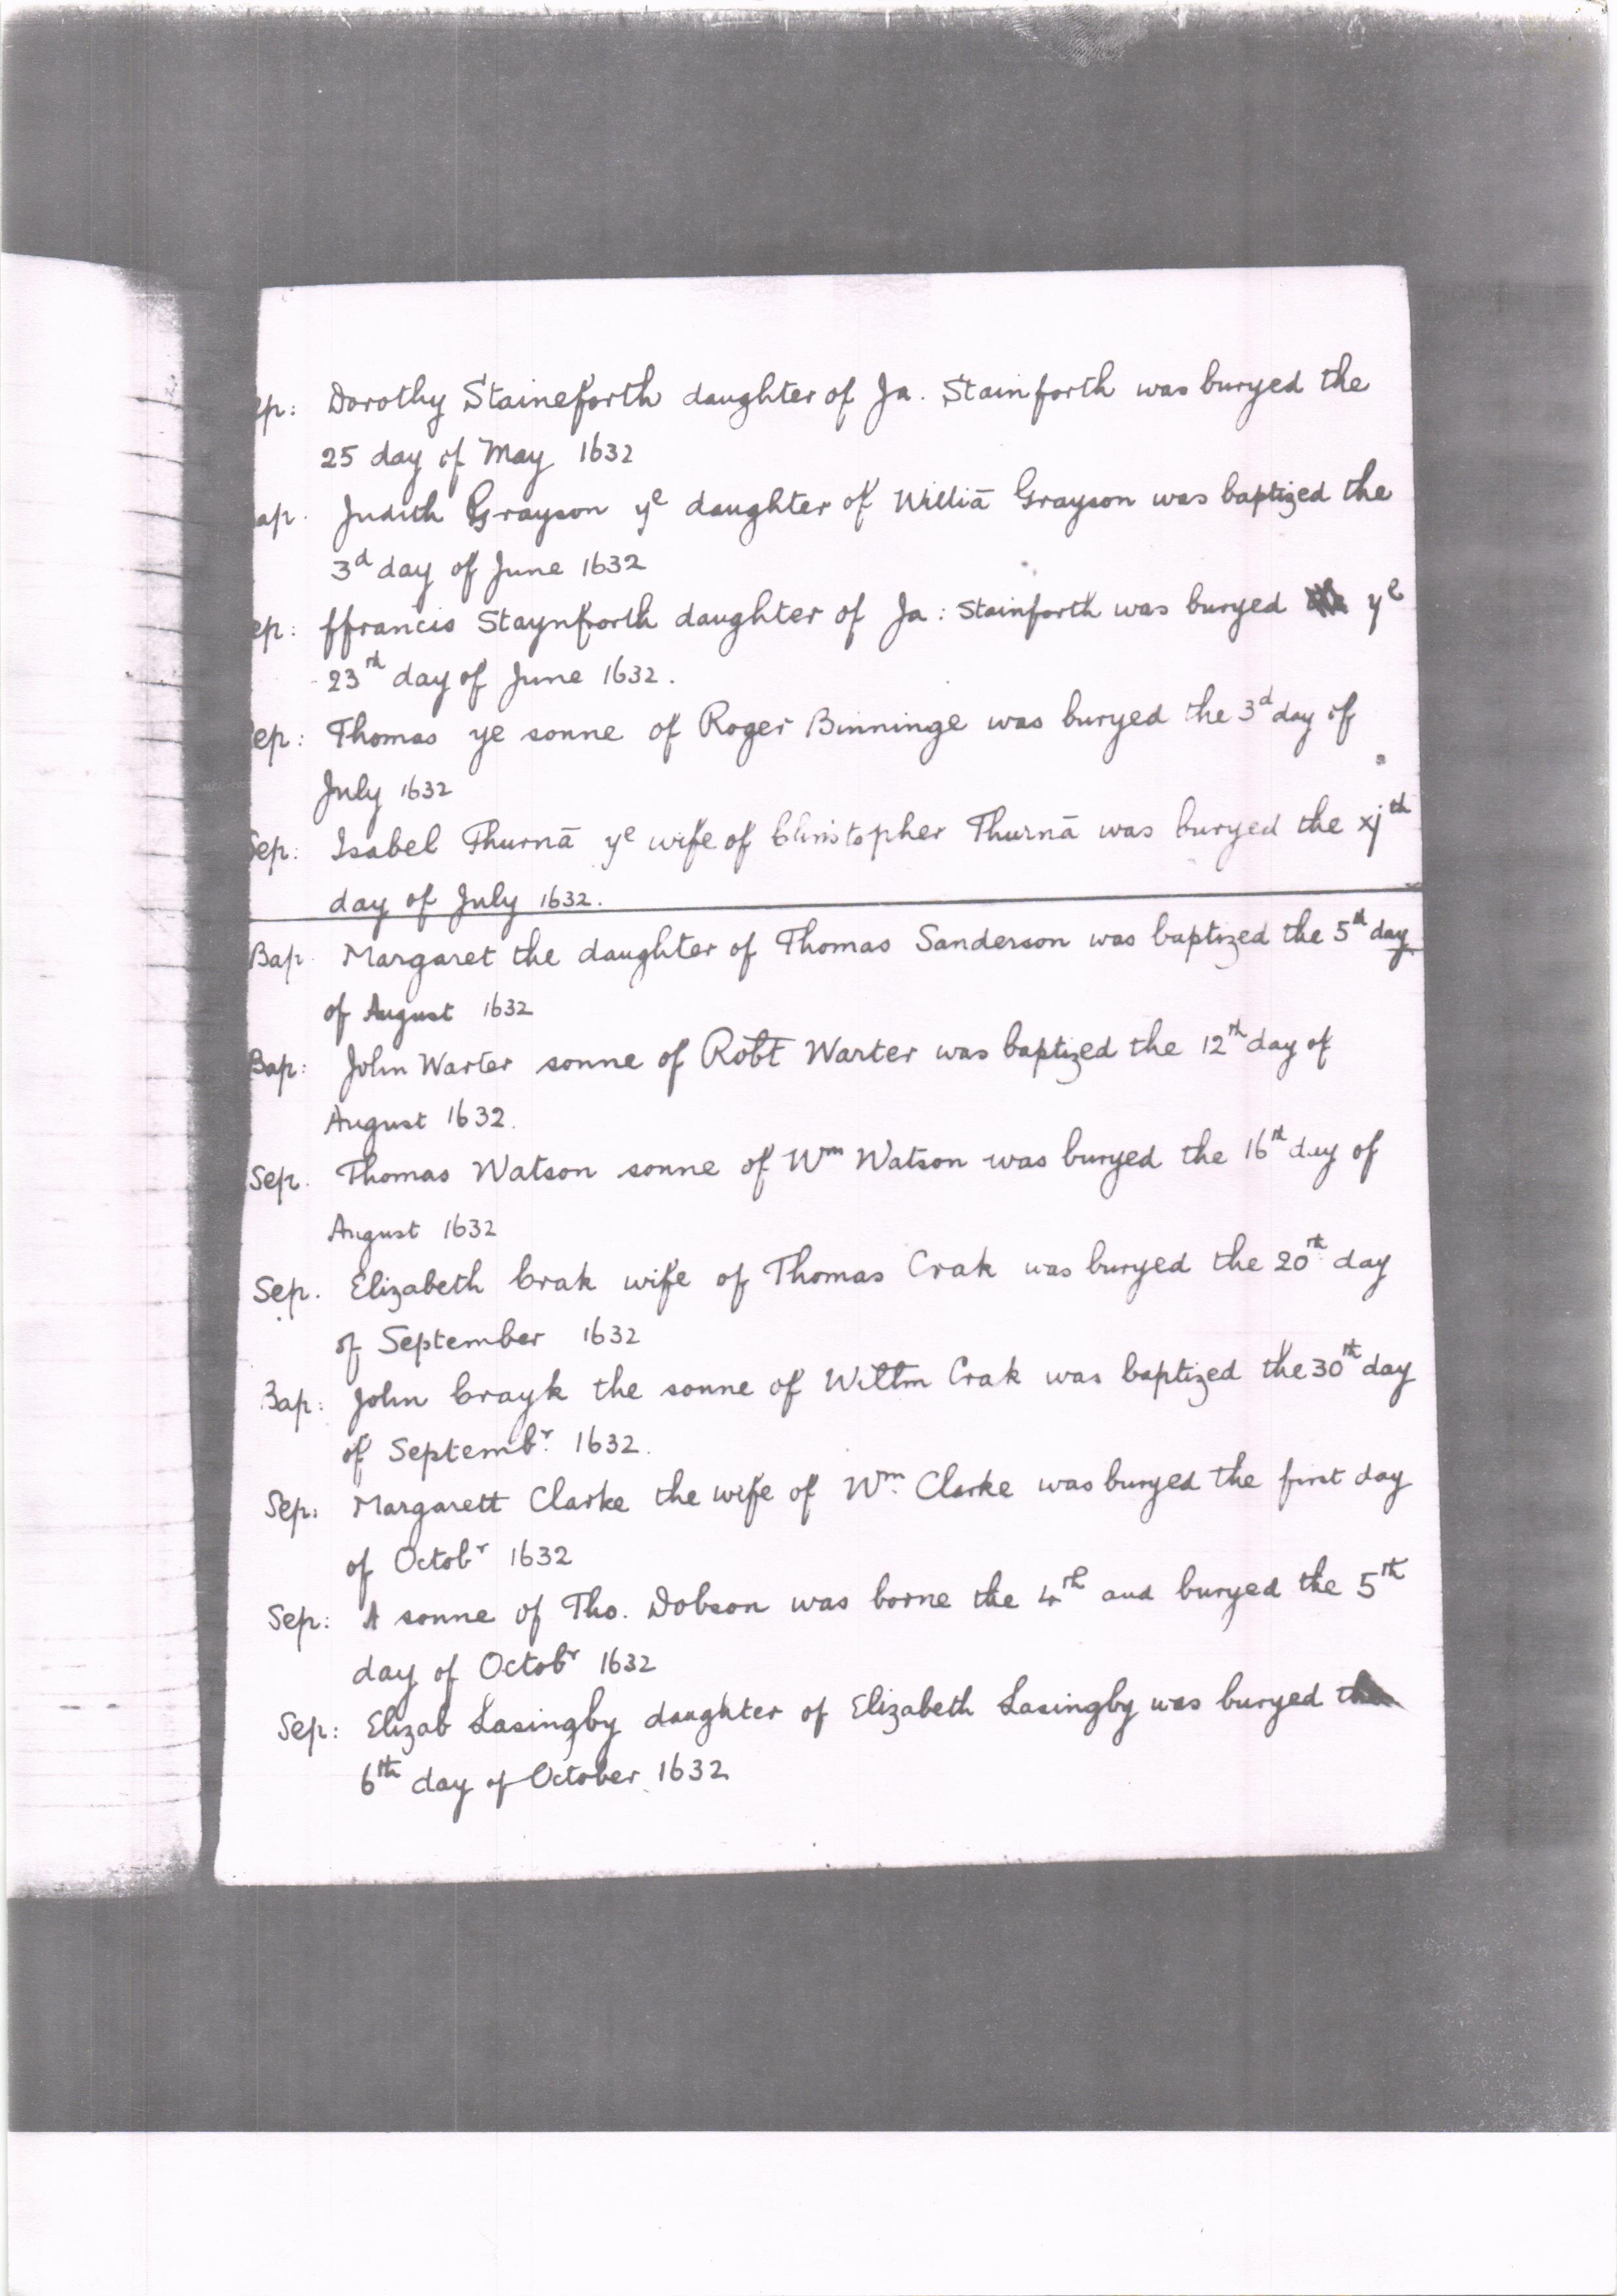 ep: Dorothy Staineforth daughter of Ja. Stainforth was buryed the
25 day of May 1632
ap. Judith Grayson yᵉ daughter of Williā Grayson was baptized the
3ᵈ day of June 1632
ep: ffrancis Staynforth daughter of Ja: Stainforth was buryed yᵉ
23ʳᵈ day of June 1632.
ep: Thomas ye sonne of Roger Binninge was buryed the 3ᵈ day of
July 1632
Sep: Isabel Thurnā yᵉ wife of Christopher Thurnā was buryed the xjᵗʰ
day of July 1632.
Bap. Margaret the daughter of Thomas Sanderson was baptized the 5ᵗʰ day
of August 1632
Bap: John Warter sonne of Robt Warter was baptized the 12ᵗʰ day of
August 1632.
Sep. Thomas Watson sonne of Wᵐ Watson was buryed the 16ᵗʰ day of
August 1632
Sep. Elizabeth Crak wife of Thomas Crak was buryed the 20ᵗʰ day
of September 1632
Bap: John Crayk the sonne of Willm Crak was baptized the 30ᵗʰ day
of Septembʳ. 1632.
Sep: Margarett Clarke the wife of Wᵐ. Clarke was buryed the first day
of Octobʳ 1632
Sep: A sonne of Tho. Dobson was borne the 4ᵗʰ and buryed the 5ᵗʰ
day of Octobʳ 1632
Sep: Elizab Lasingby daughter of Elizabeth Lasingby was buryed the
6ᵗʰ day of October 1632